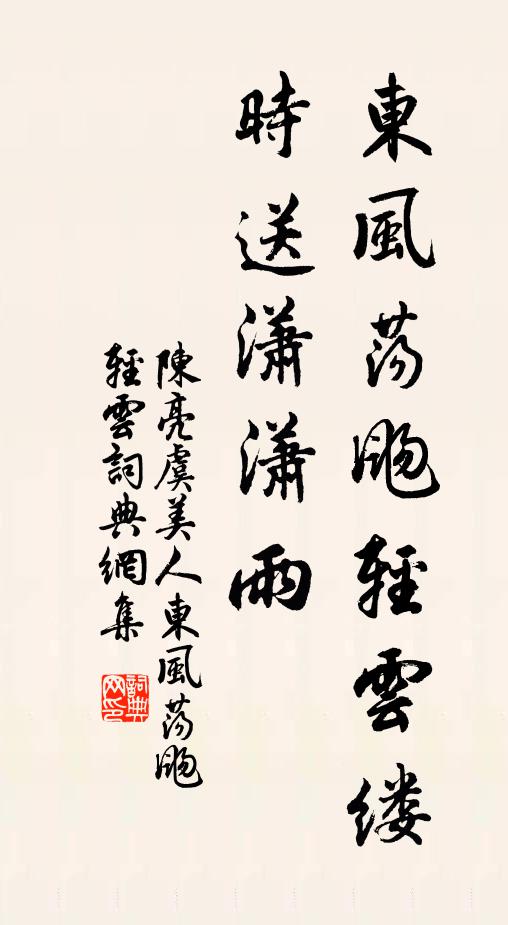 東風蕩颺輕雲縷
時送瀟瀟雨
陳亮虞美人東風蕩颺
輕雲詞典網集
詞典网印